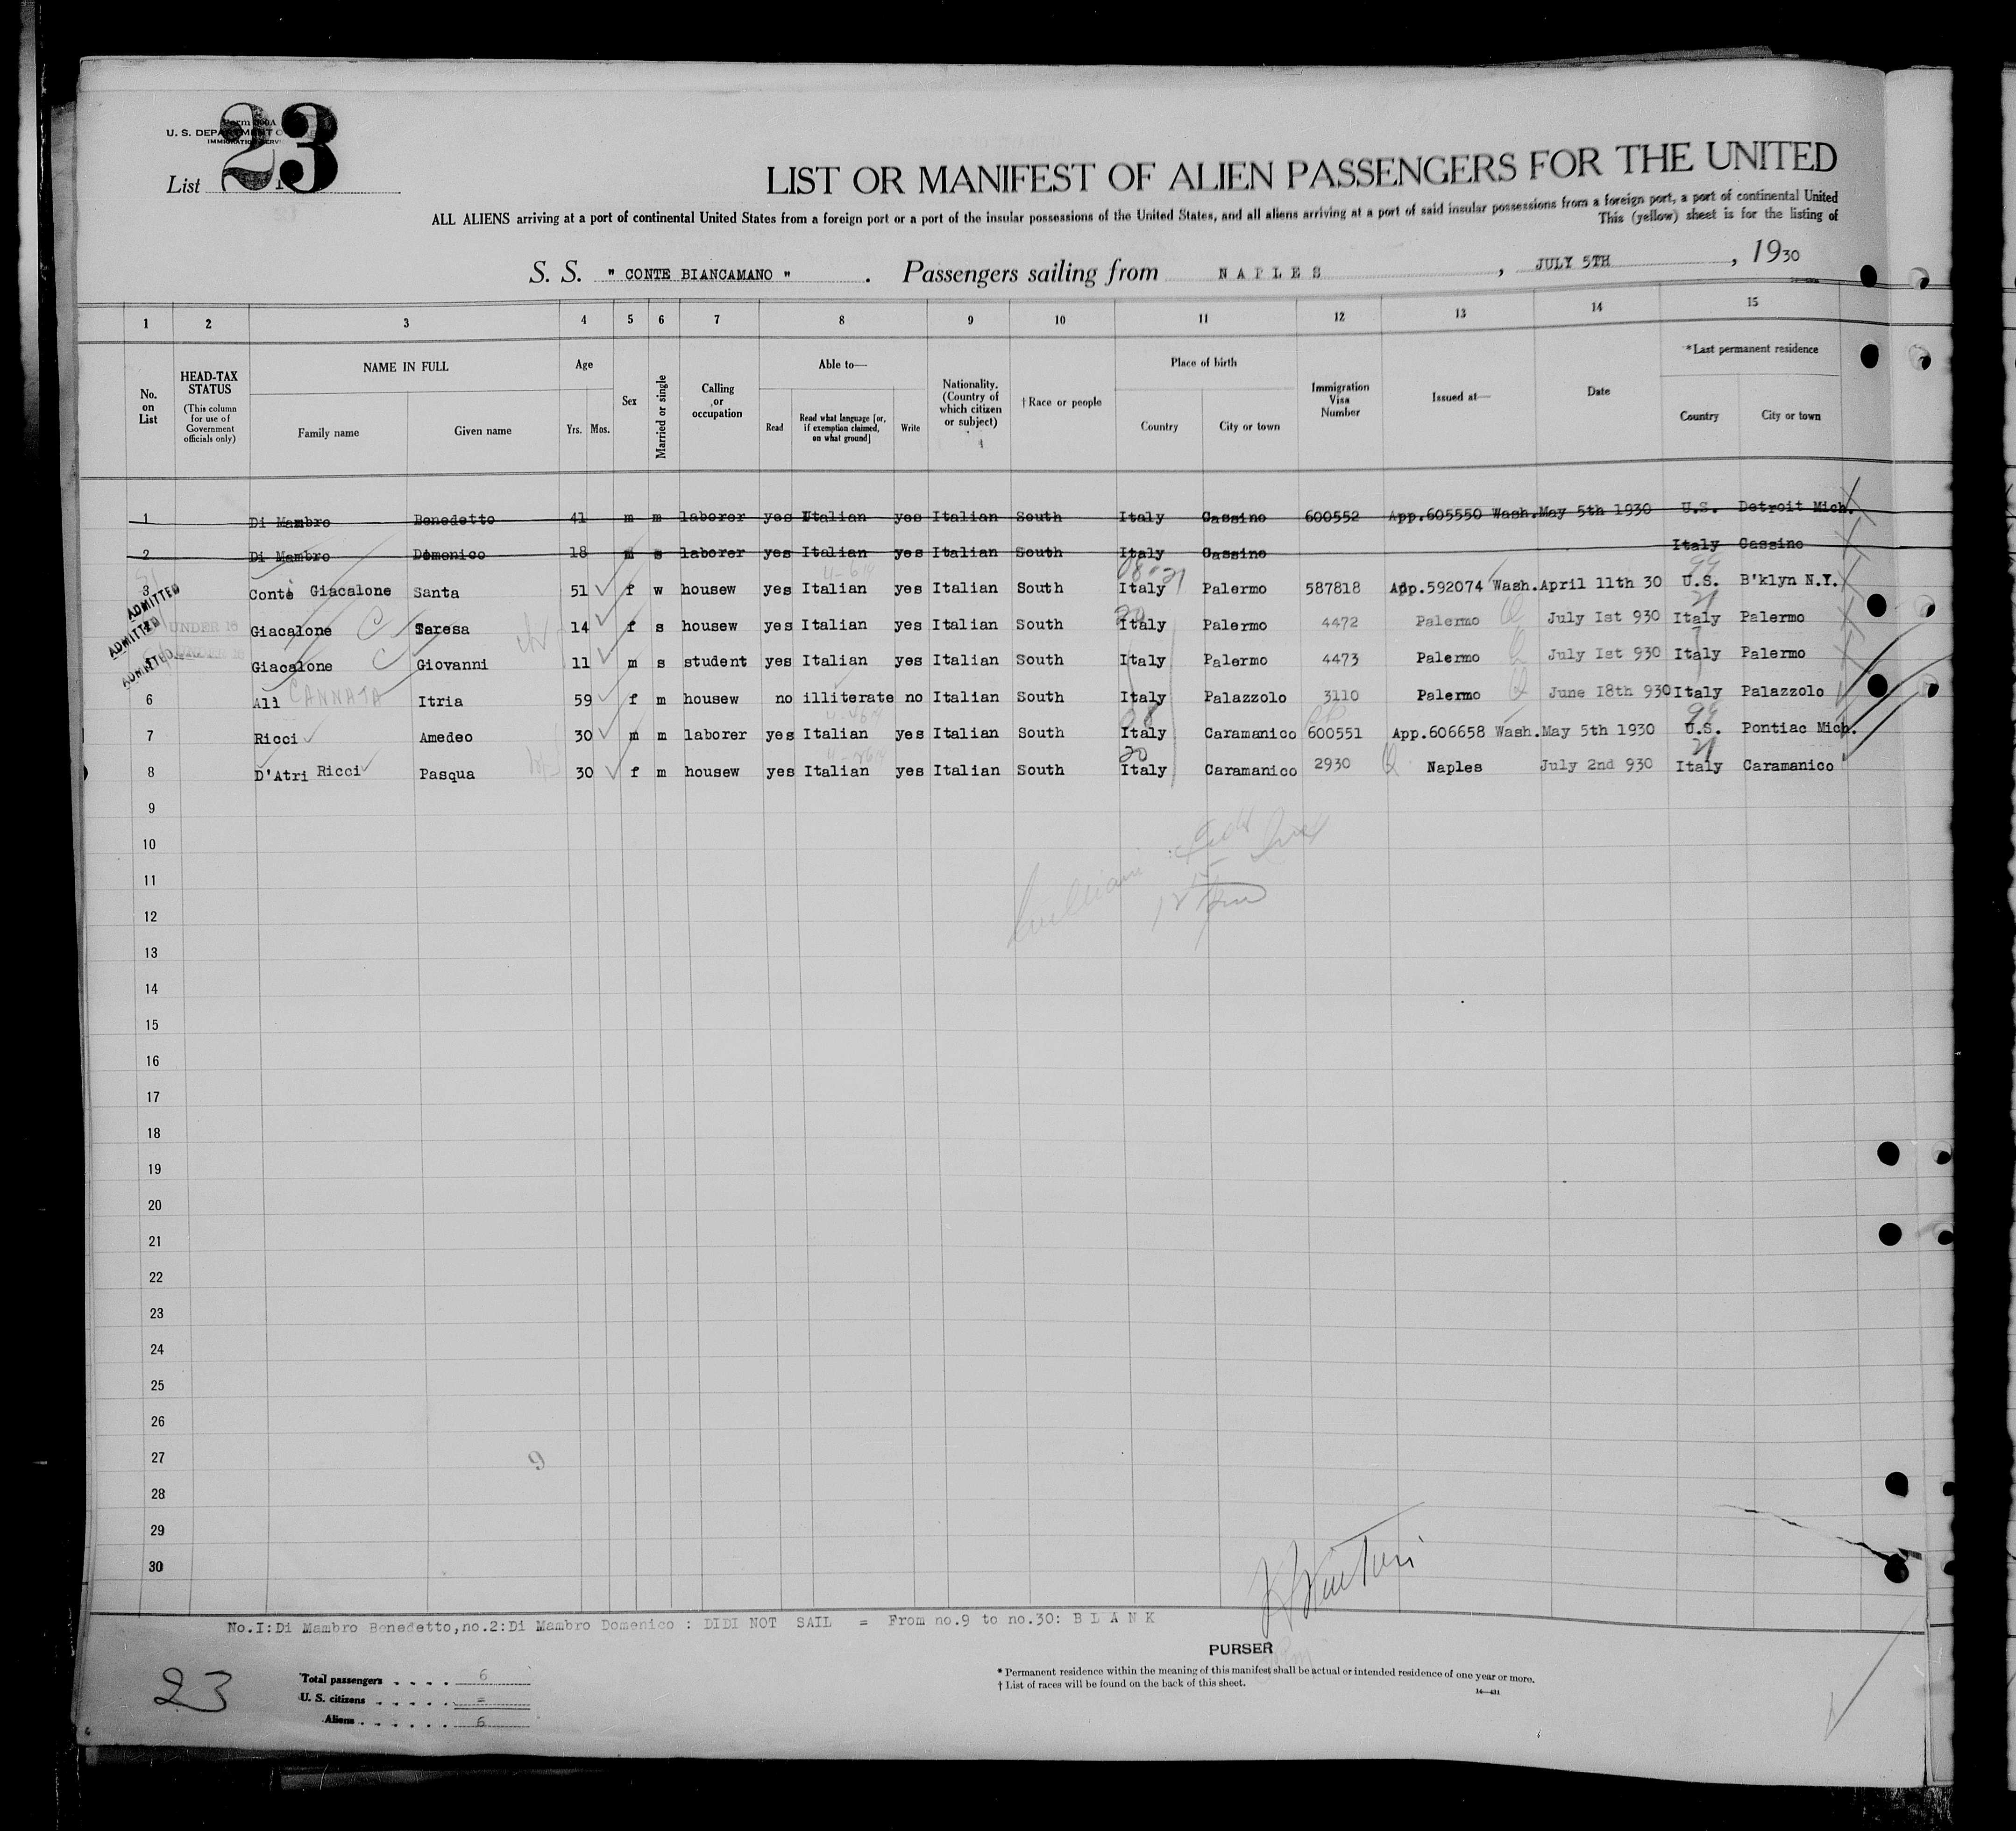 23
U. S. DEPARTMENT O
List
LIST OR MANIFEST OF ALIEN PASSENGERS FOR THE UNITED
ALL ALIENS arriving at a port of continental United States from a foreign port or a port of the insular possessions of the United States, and all aliens arriving at a port of said insular possessions from a foreign port, a port of continental United
This (yellow) sheet is for the listing of
S. S. " CONTE BIANCAMANO " . Passengers sailing from NAPLES , JULY 5TH , 1930
1 2 3 4 5 6 7 8 9 10 11 12 13 14 15
No. on List
HEAD-TAX STATUS (This column for use of Government officials only)
NAME IN FULL
Family name Given name
Age
Yrs. Mos.
Sex
Married or single
Calling or occupation
Able to—
Read Read what language [or, if exemption claimed, on what ground] Write
Nationality. (Country of which citizen or subject)
† Race or people
Place of birth
Country City or town
Immigration Visa Number
Issued at—
Date
*Last permanent residence
Country City or town
1 Di Mambro Benedetto 41 m m laborer yes Italian yes Italian South Italy Cassino 600552 App.605550 Wash. May 5th 1930 U.S. Detroit Mich.
2 Di Mambro Domenico 18 m s laborer yes Italian yes Italian South Italy Cassino Italy Cassino
3 Conte Giacalone Santa 51 f w housew yes Italian yes Italian South Italy Palermo 587818 App.592074 Wash. April 11th 30 U.S. B'klyn N.Y.
ADMITTED
UNDER 16 Giacalone Teresa 14 f s housew yes Italian yes Italian South Italy Palermo 4472 Palermo July Ist 930 Italy Palermo
ADMITTED
Giacalone Giovanni 11 m s student yes Italian yes Italian South Italy Palermo 4473 Palermo July Ist 930 Italy Palermo
ADMITTED
6 Alì CANNATA Itria 59 f m housew no illiterate no Italian South Italy Palazzolo 3110 Palermo June I8th 930 Italy Palazzolo
7 Ricci Amedeo 30 m m laborer yes Italian yes Italian South Italy Caramanico 600551 App.606658 Wash. May 5th 1930 U.S. Pontiac Mich.
8 D'Atri Ricci Pasqua 30 f m housew yes Italian yes Italian South Italy Caramanico 2930 Naples July 2nd 930 Italy Caramanico
9
10
11
12
13
14
15
16
17
18
19
20
21
22
23
24
25
26
27
9
28
29
30
No.I:Di Mambro Benedetto,no.2:Di Mambro Domenico : DIDI NOT SAIL = From no.9 to no.30: B L A N K
PURSER
23
Total passengers . . . . 6
U. S. citizens . . . . . =
Aliens . . . . . . 6
* Permanent residence within the meaning of this manifest shall be actual or intended residence of one year or more.
† List of races will be found on the back of this sheet.